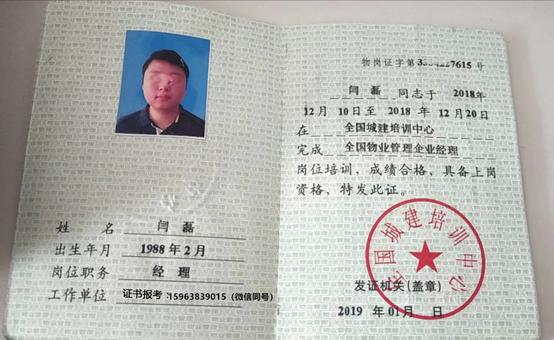 姓 名 闫磊
出生年月 1988 年 2 月
岗位职务 经 理
工作单位 证书报考：15963839015（微信同号）
物岗证字第3 7615 号
闫 磊 同志于 2018年
12月 10日至 2018 年 12月20日
在 全国城建培训中心
完成 全国物业管理企业经理
岗位培训，成绩合格，具备上岗
资格，特发此证。
全国城建培训中心
发证机关(盖章)
2019 年01月 日